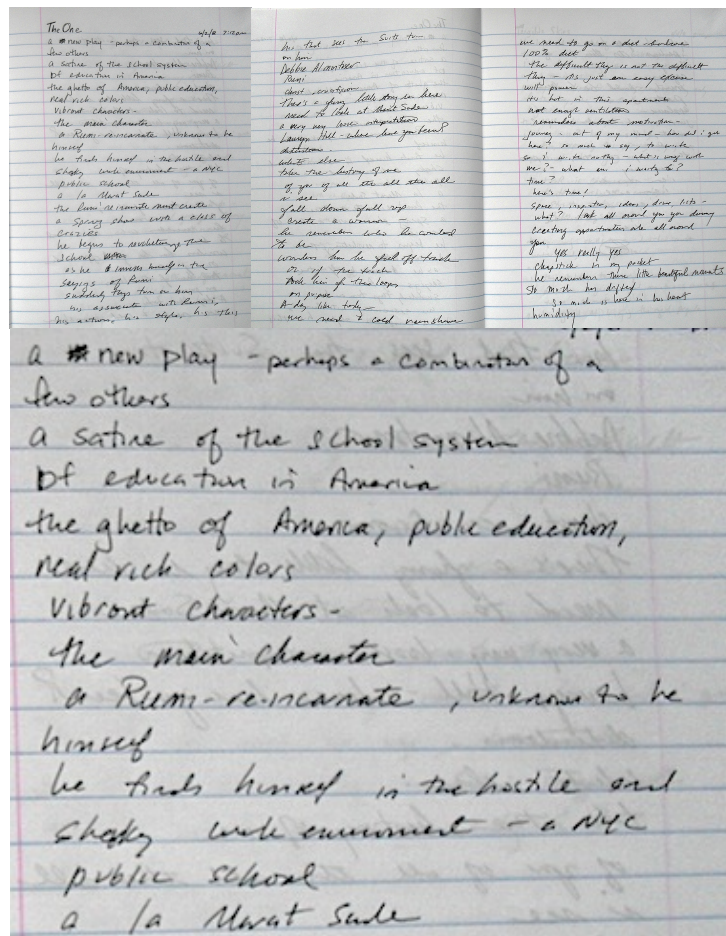 The One
a new play - perhaps a combination of a
few others
a satire of the school system
of education in America
the ghetto of America, public education,
real rich colors
vibrant characters -
the main character
a Rumi-reincarnate, unknown to he
himself
he finds himself in the hostile and
shaky work enviroment - a NYC
public school
a la Marat Sade
the Rumi reincarnate must create
a Spring show with a class of
crazies
he begins to revolutionize the
school
as he
sayings of Rumi
suddenly they turn on him
his
his actions, his styles, his this
his that
on him
Rumi
There's a funny little story in here
need to look at Marat Sade
a very very loose interpretation
Lauryn Hill - where have you been?
what else
take the history of me
of you of all the all the all
I see
y'all down y'all up
create a woman -
he remembers when he wanted
to be
wonders how he got off track
or if the track
took him off the loops
on purpose
A day like today -
we need a cold rain shower
we need to go on a diet
100% diet
the difficult thing is not the difficult
thing - it's just an easy excuse
its hot in this apartment
not enough ventilation
remembers about motivation -
journey - out of my mind - how did I get
here? so much to say, to write
so I write nothing - what is wrong with
me? - what am I waiting for?
time?
here's time!
space, inspiration, ideas, drive, lists -
what? look all around you you
creating opportunities are all around
you
yes really yes
chapstick in my pocket
he remembers those little beautiful moments
so much has drifted
so much is here in his heart
humidity
a new play - perhaps a combination of a
few others
a satire of the school system
of education in America
the ghetto of America, public education,
real rich colors
vibrant characters -
the main character
a Rumi-re-incarnate, unknown to he
himself
he finds himself in the hostile and
shaky work enviroment - a NYC
public school
a la Marat Sade